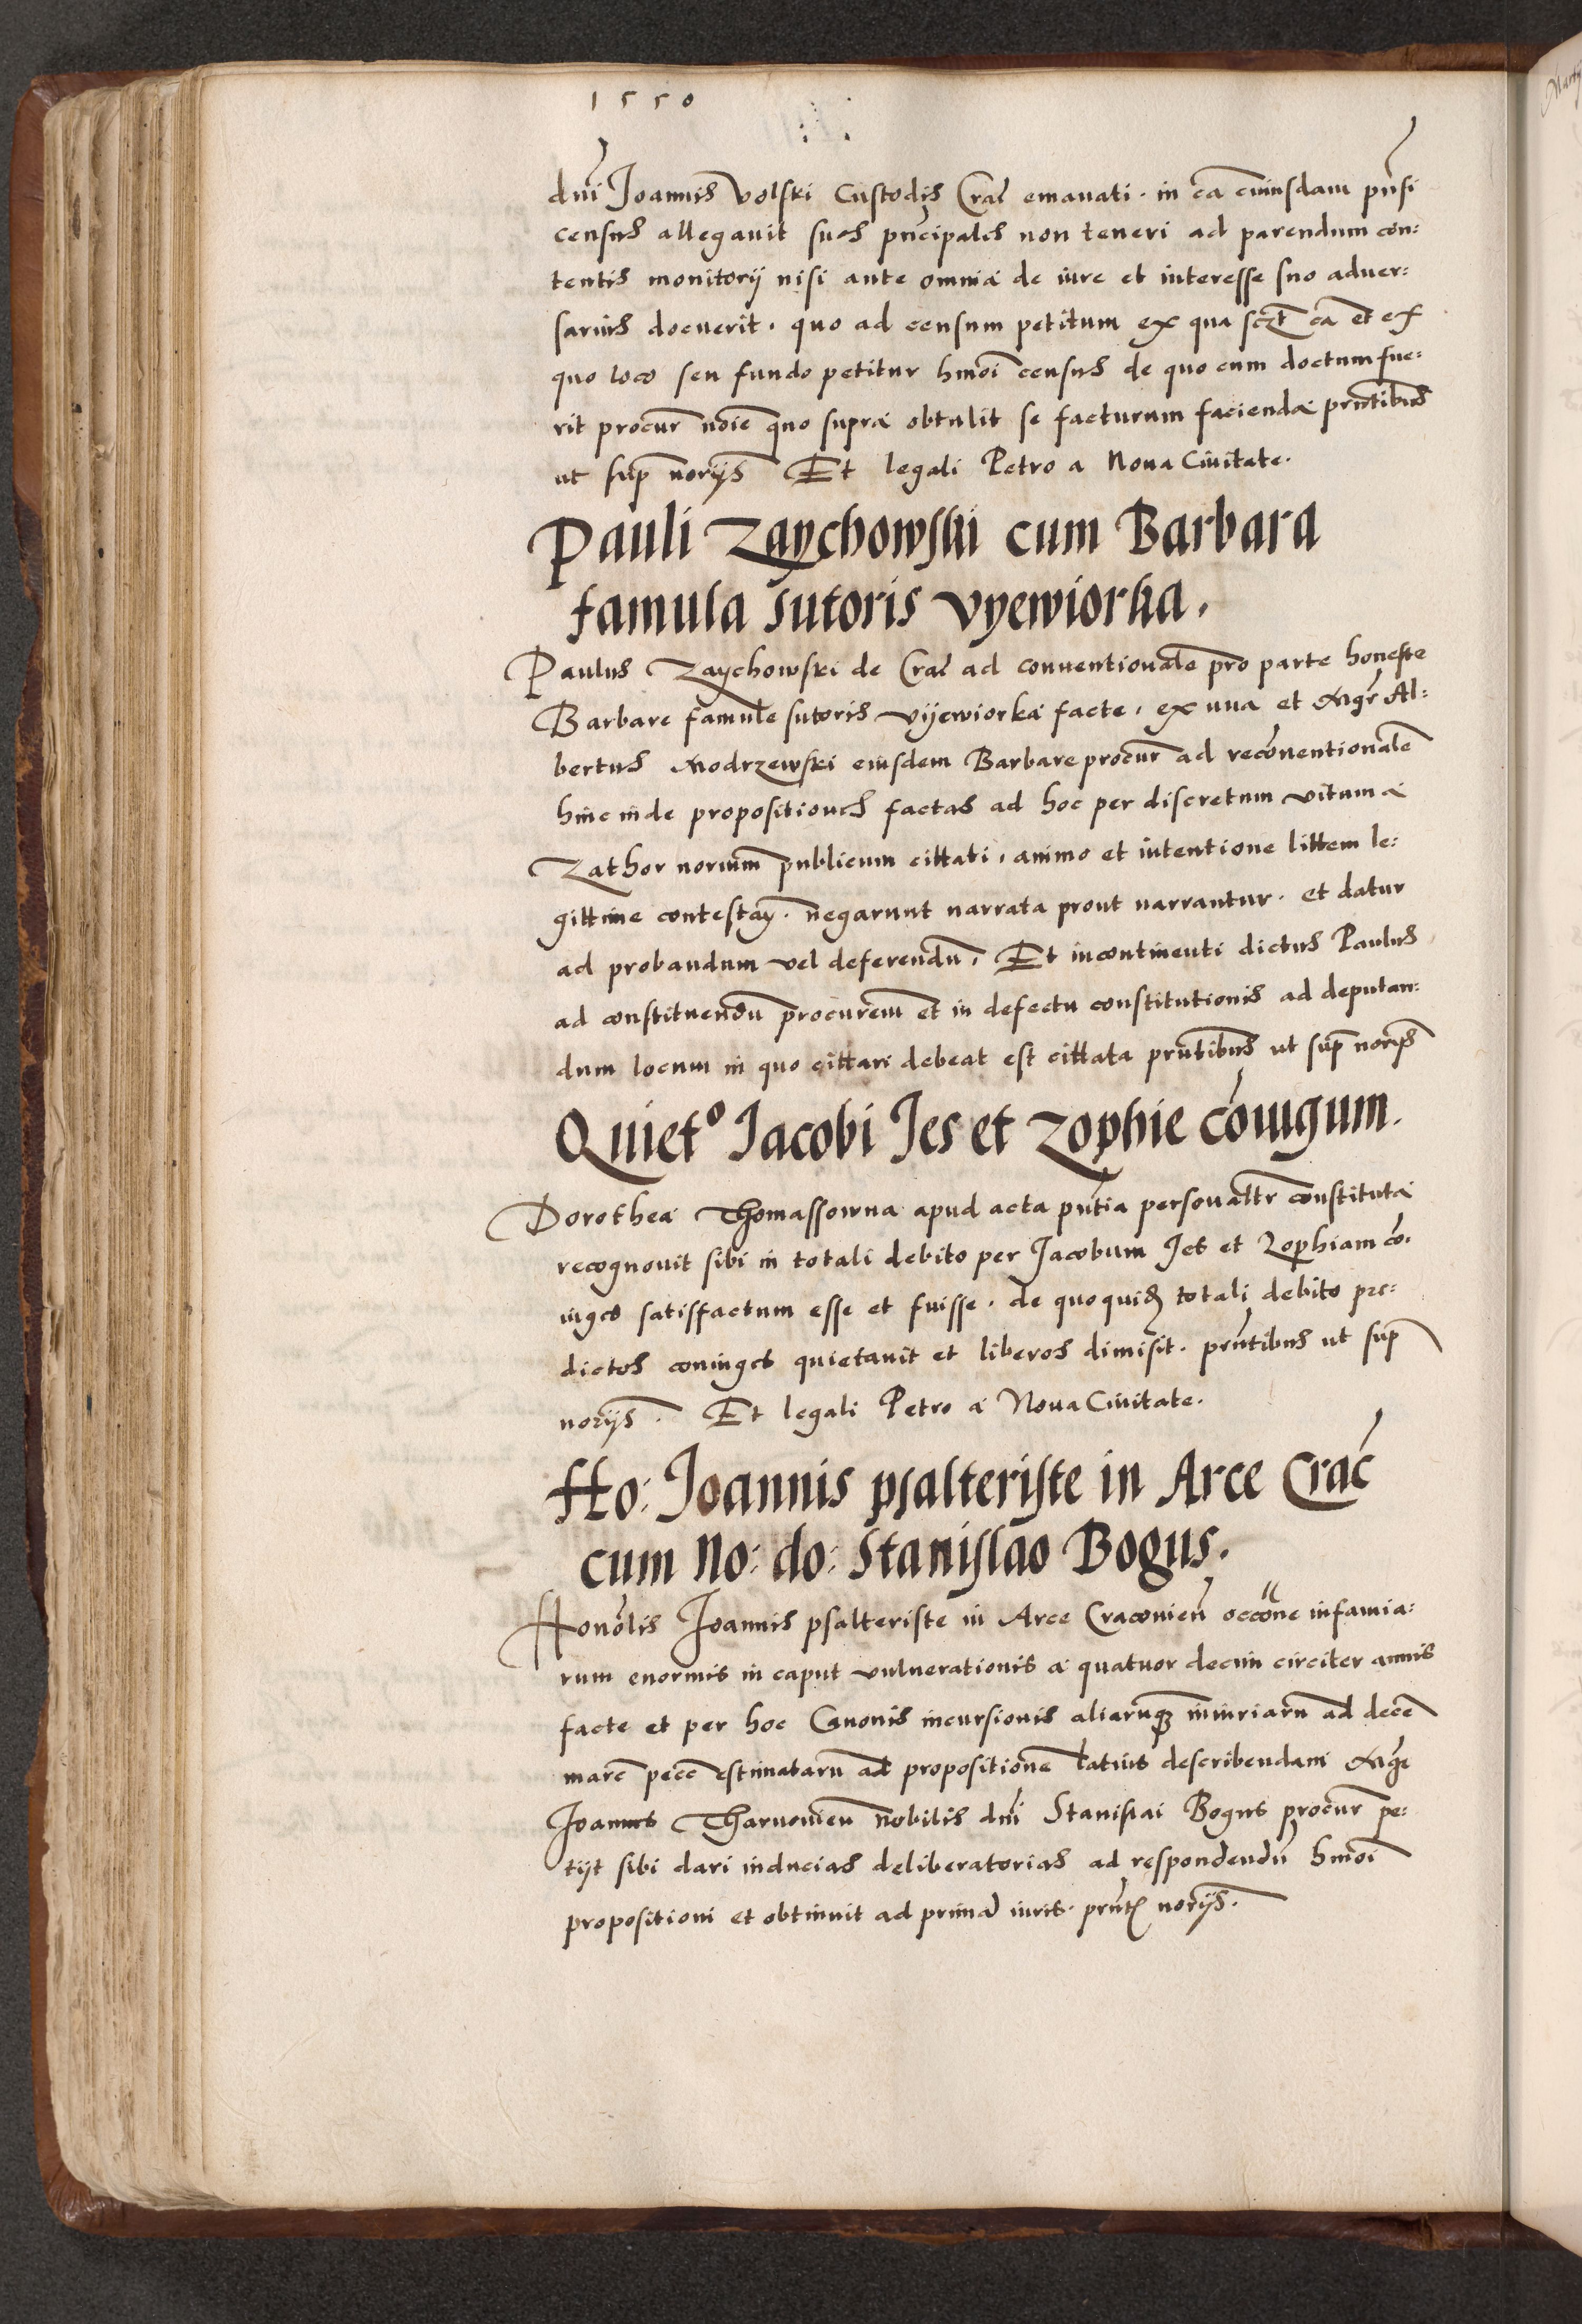 1550
dni Joannis Volski Custodis Crac emanati. in ca cuiusdam pnsi
census allegauit suos pncipales non teneri ad parendum con:
tentis monitorij nisi ante omnia de iure et interesse suo aduer:
sarius docuerit. quo ad censum petitum ex qua sczt ca et ex
quo loco seu fundo petitur hmoi census de quo cum doctum fue:
rit procur noie quo supra obtulit se facturum facienda pntibus
ut sup norijs Et legali Petro a Noua Ciuitate.
Pauli Zaychowski cum Barbara
famula sutoris Vyewiorka.
Paulus Zaychowski de Crac ad conuentionale pro parte honeste
Barbare famule sutoris Vyewiorka facte. ex una et Mgr Al:
bertus Modrzewski eiusdem Barbare procur ad reconuentionale
hinc inde propositiones factas ad hoc per discretum Vitum a
Zathor norium publicum cittati. animo et intentione littem le:
gittime contestan. negarunt narrata prout narrantur. et datur
ad probandum vel deferendu. Et incontinenti dictus Paulus
ad constituendu procurem et in defectu constitutionis ad deputan:
dum locum in quo cittari debeat est cittata pntibus ut sup norijs
Quieto Jacobi Jes et Zophie coniugum.
Dorothea Thomassowna apud acta pntia personaltr constituta
recognouit sibi in totali debito per Jacobum Jes et Zophiam co:
iuges satisfactum esse et fuisse. de quoquid totali debito pre:
dictos coniuges quietauit et liberos dimisit. pntibus ut sup
norijs. Et legali Petro a Noua Ciuitate.
Ho: Joannis psalteriste in Arce Crac
cum No: do: Stanislao Bogus.
Honolis Joannis psalteriste in Arce Cracouien occone infamia:
rum enormis in caput vulnerationis a quatuor decim circiter annis
facte et per hoc Canonis incursionis aliarumq iniuriaru ad dece
marc pecc estimataru ad propositione latius describendam Mgr
Joannes Tharnouien nobilis dni Stanislai Bogus procur pe:
tijt sibi dari inducias deliberatorias ad respondendu hmoi
propositioni et obtinuit ad prima iuris. pntb norijs.